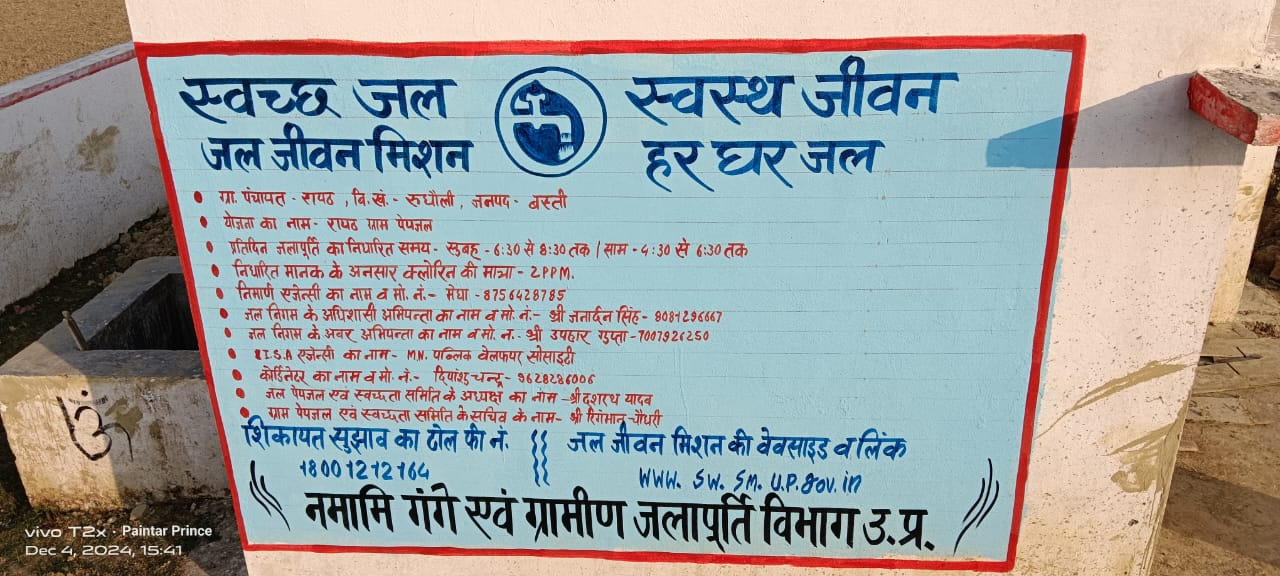 स्वच्छ जल स्वस्थ जीवन
जल जीवन मिशन हर घर जल
• ग्रा. पंचायत - रायठ , वि.खं.- रुधौली , जनपद - बस्ती
• योजना का नाम- रायठ ग्राम पेयजल
• प्रतिदिन जलापूर्ति का निर्धारित समय - सुबह - 6:30 से 8:30 तक / साम - 4:30 से 6:30 तक
• निर्धारित मानक के अनसार क्लोरित की मात्रा - 2PPM.
• निर्माण एजेन्सी का नाम व मो. नं.- मेघा - 8756428785
• जल निगम के अधिशासी अभियन्ता का नाम व मो. नं:- श्री जनार्दन सिंह- 8081296667
• जल निगम के अवर अभियन्ता का नाम व मो. नं.- श्री उपहार गुप्ता -7007926250
• I.S.A एजेन्सी का नाम- M.N. पब्लिक वेलफयर सोसाइटी
• कोर्डिनेटर का नाम व मो. नं.- चन्द्र- 9628286006
• जल पेयजल एवं स्वच्छता समिति के अध्यक्ष का नाम -श्री दशरथ यादव
• ग्राम पेयजल एवं स्वच्छता समिति के सचिव के नाम- श्री चौधरी
शिकायत सुझाव का टोल फ्री नं. जल जीवन मिशन की वेवसाइड व लिंक
18001212164 WWW. SW. SM. U.P. Gov. in
नमामि गंगे एवं ग्रामीण जलापूर्ति विभाग उ.प्र.
ॐ
vivo T2x · Paintar Prince
Dec 4, 2024, 15:41